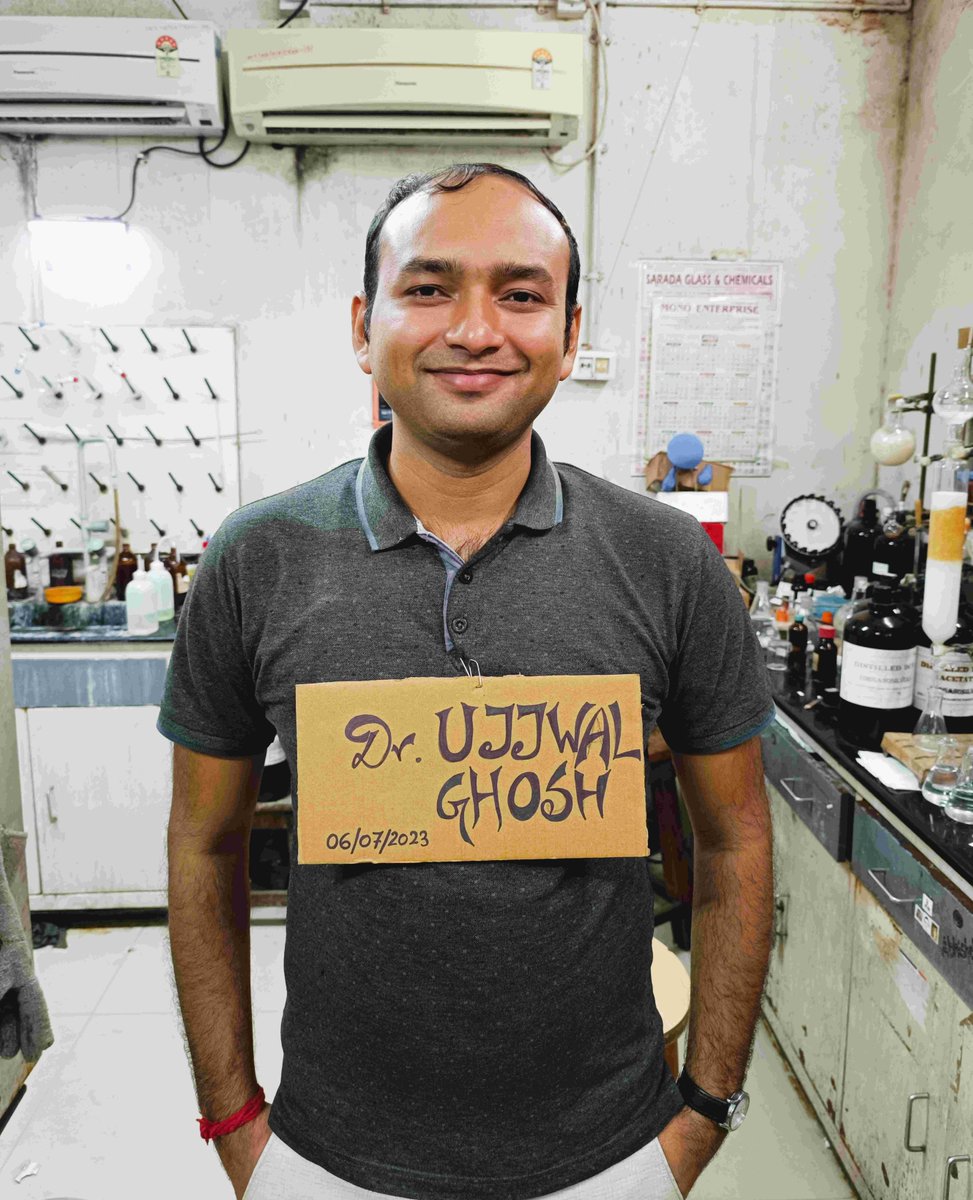 Panasonic
Panasonic
SARADA GLASS & CHEMICALS
MONO ENTERPRISE
Dr. UJJWAL
GHOSH
06/07/2023
DISTILLED
DISTILLED